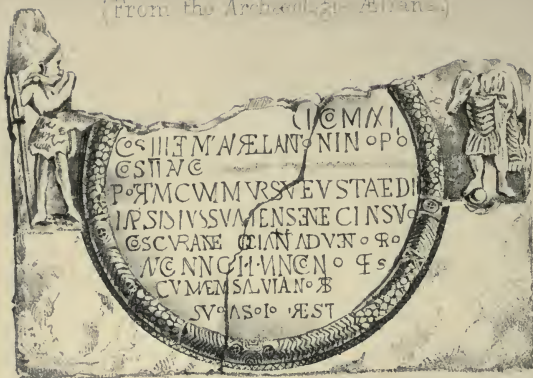 (From the Archæologia Æliana.)
COS IIII ET M AVREL ANTONINO PO
COS II AVG
PORTAM CVM MVRS VEVSTAE DI
IAPSIS IVSSV ALFEN SENECINS VO
COS CVRANE COL ANI ADVENO PRO
AVG NN C I VNGON O PF S
CVM AEM SALVIANO TRIB
SVO A SOLO REST